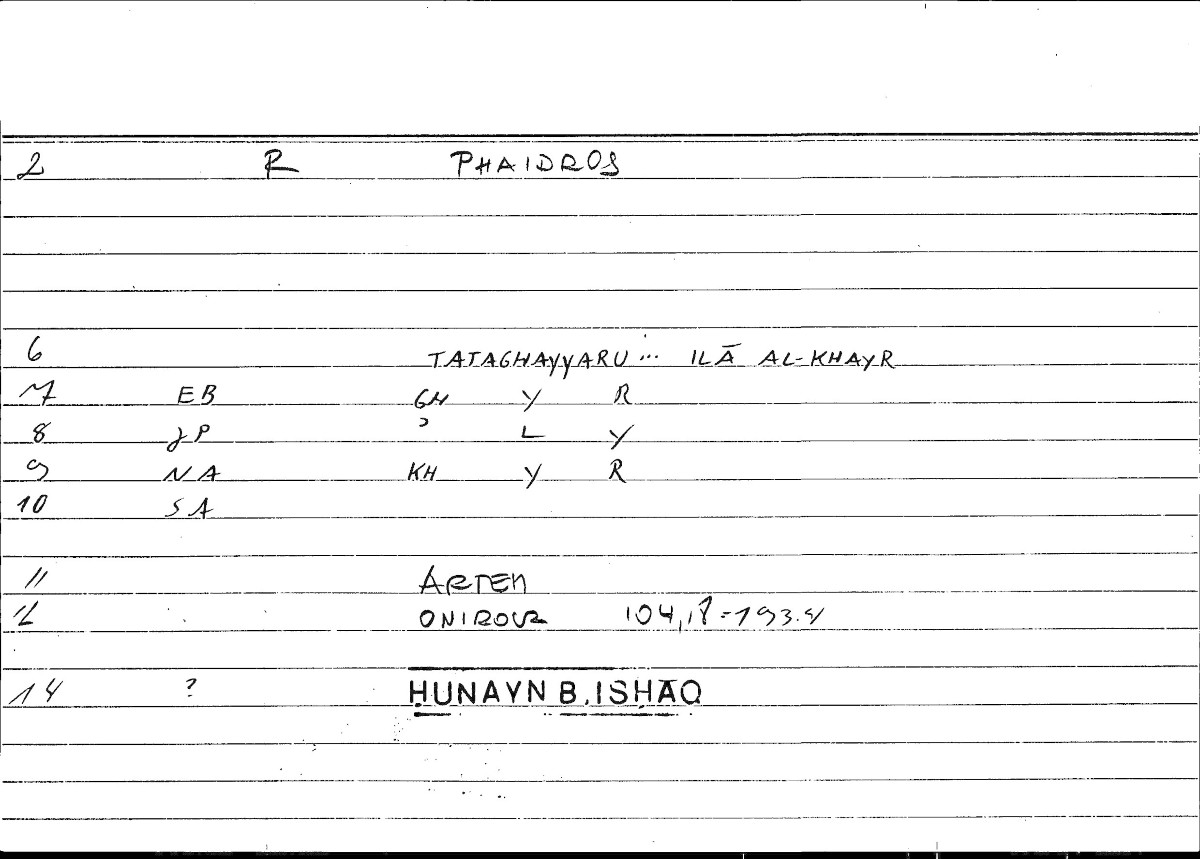 2 R PHAIDROS
6 TATAGHAYYARU ... ILĀ AL-KHAYR
7 EB GH Y R
8 JP ʾ L Y
9 NA KH Y R
10 SA
11 ARTEM
12 ONIROCR 104,
14 ? ḤUNAYN B. ISḤĀQ